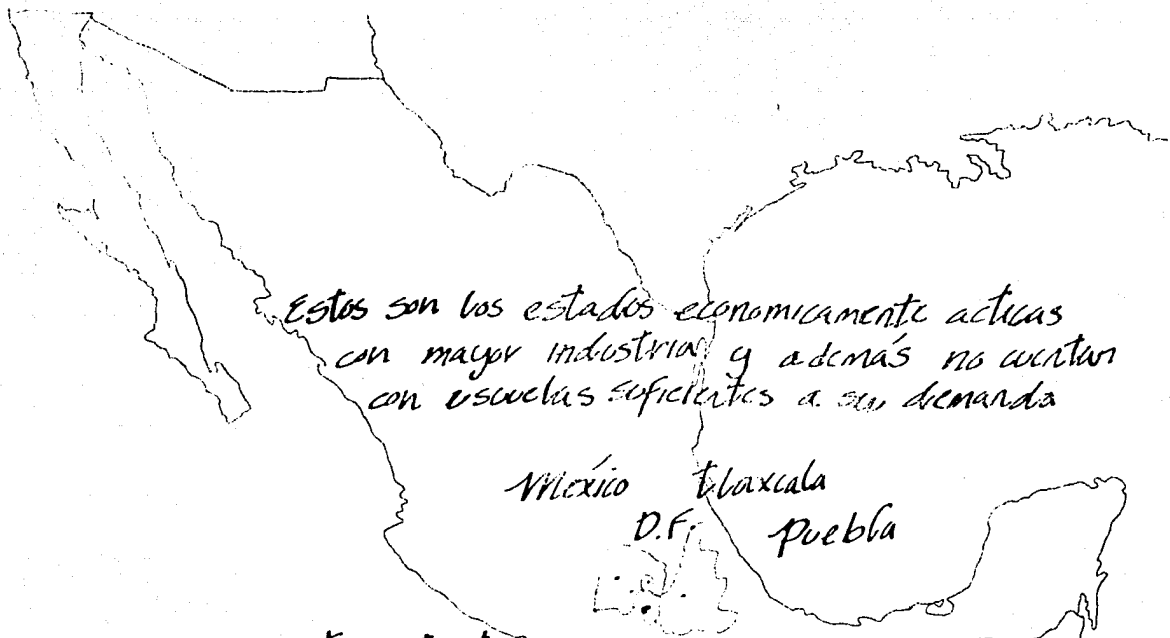 Estos son los estados economicamente acticas
con mayor industria y además no cuentan
con escuelas suficientes a su demanda
México tlaxcala
D.F. Puebla